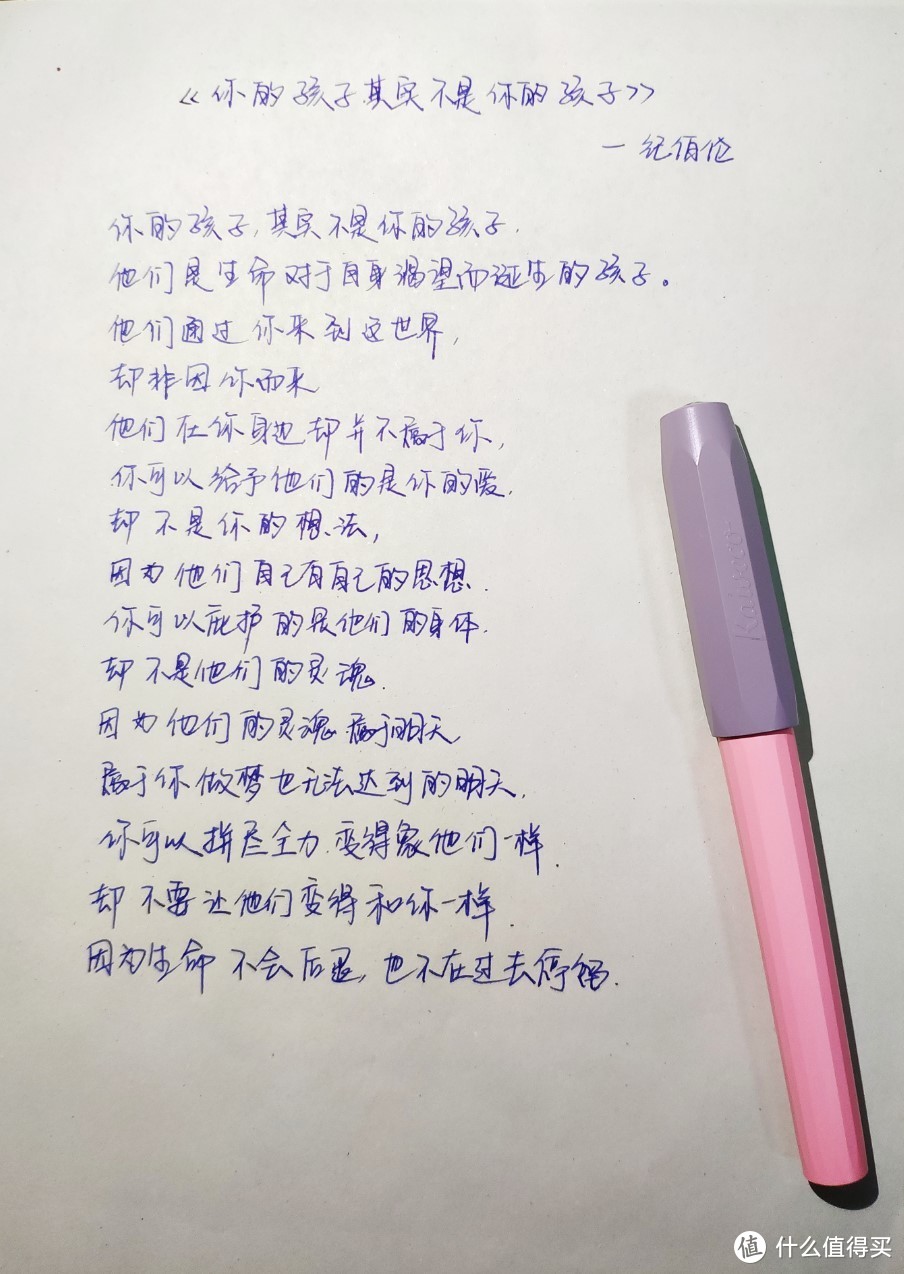 《你的孩子其实不是你的孩子》
一 纪佰伦
你的孩子,其实不是你的孩子.
他们是生命对于自身渴望而诞生的孩子。
他们通过你来到这世界,
却非因你而来
他们在你身边却并不属于你,
你可以给予他们的是你的爱.
却不是你的想法,
因为他们自己有自己的思想.
你可以庇护的是他们的身体.
却不是他们的灵魂.
因为他们的灵魂属于明天.
属于你做梦也无法达到的明天.
你可以拼尽全力.变得象他们一样.
却不要让他们变得和你一样.
因为生命不会后退,也不在过去停留.
Kaweco
值 什么值得买